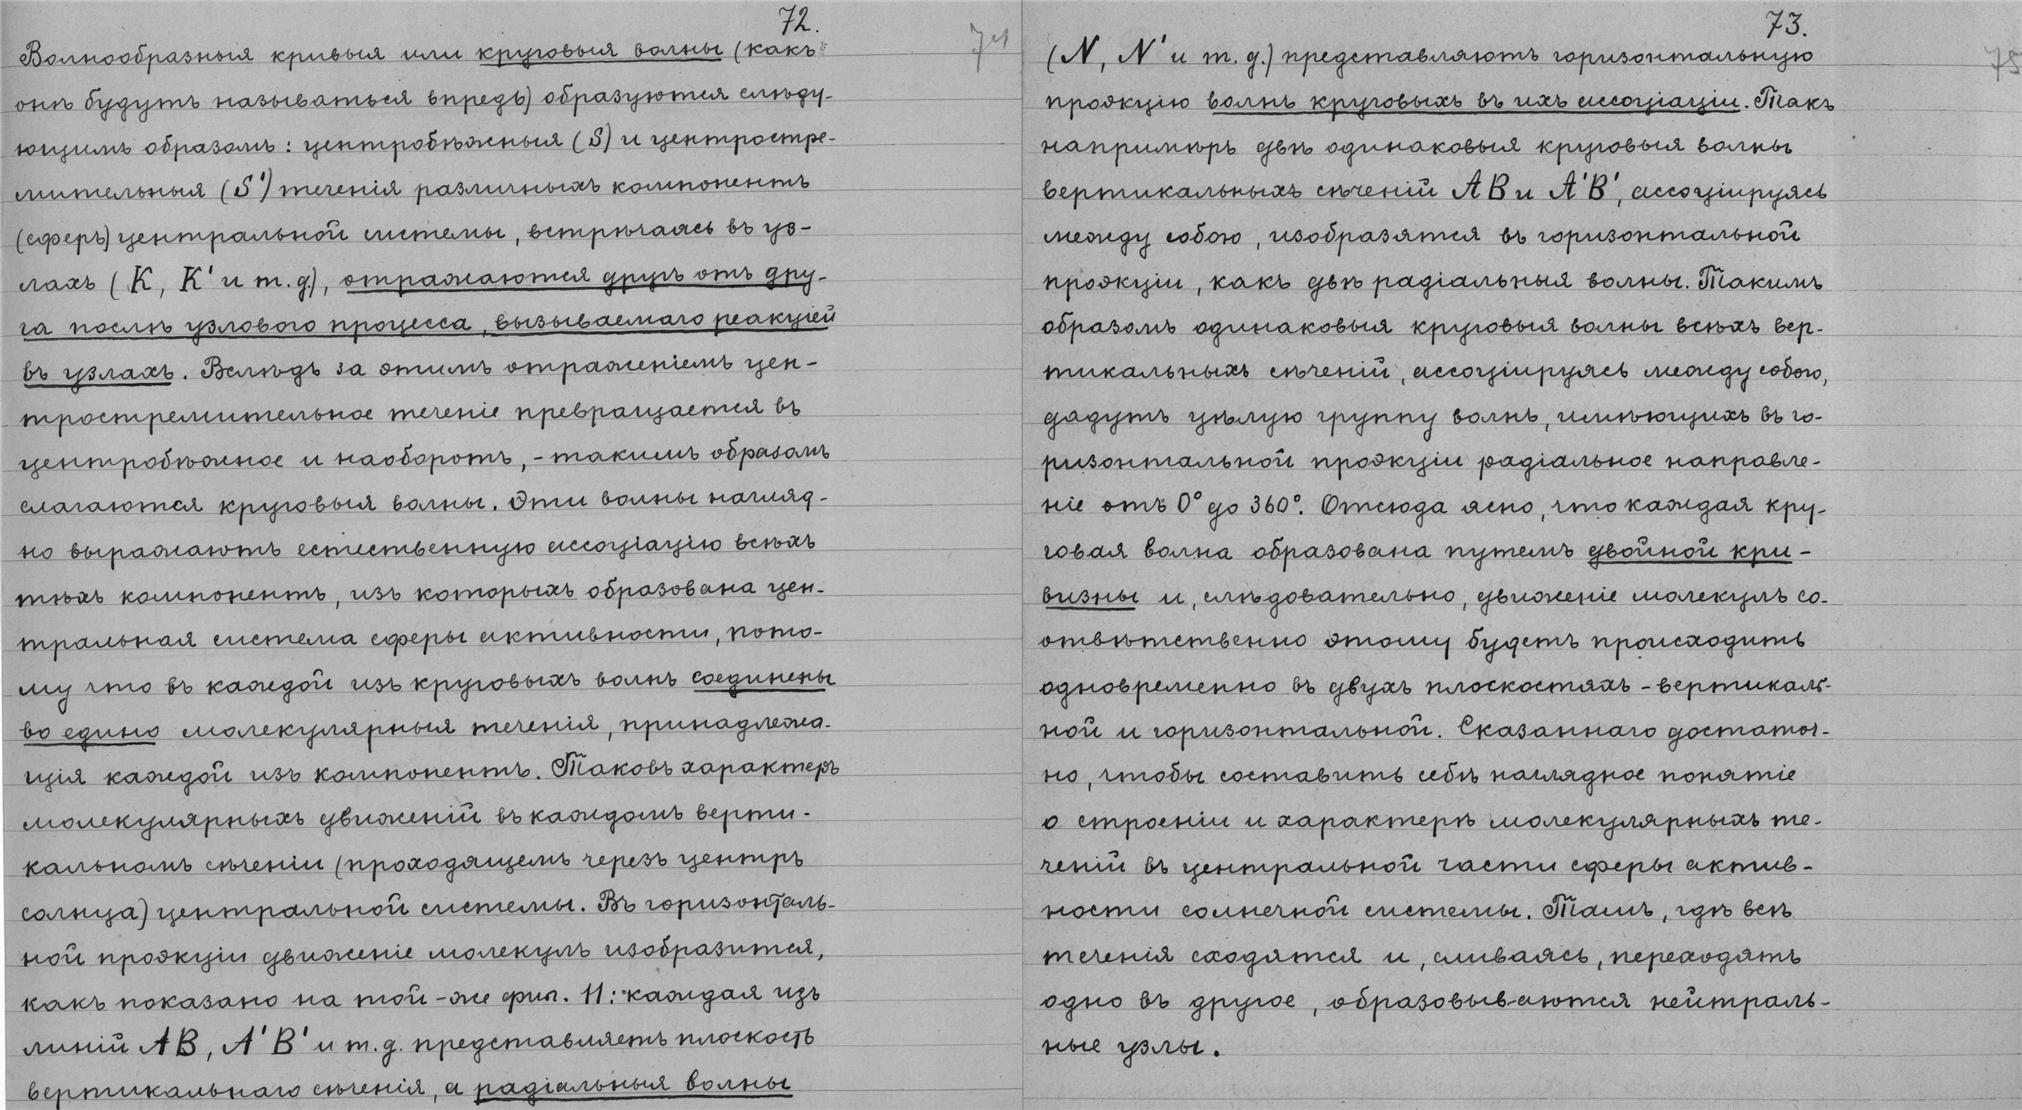 72.
Волнообразныя кривыя или круговыя волны (какъ
онѣ будутъ называться впредь) образуются слѣду-
ющимъ образомъ: центробѣжныя (S) и центростре-
мительныя (S') теченія различныхъ компонентъ
(сферъ) центральной системы, встрѣчаясь въ уз-
лахъ (К, К' и т. д.), отражаются другъ отъ дру-
га послѣ узлового процесса, вызываемаго реакціей
въ узлахъ. Вслѣдъ за этимъ отраженіемъ цен-
тростремительное теченіе превращается въ
центробѣжное и наоборотъ, - такимъ образомъ
слагаются круговыя волны. Эти волны нагляд-
но выражаютъ естественную ассоціацію всѣхъ
тѣхъ компонентъ, изъ которыхъ образована цен-
тральная система сферы активности, пото-
му что въ каждой изъ круговыхъ волнъ соединены
во едино молекулярныя теченія, принадлежа-
щія каждой изъ компонентъ. Таковъ характеръ
молекулярныхъ движеній въ каждомъ верти-
кальномъ сѣченіи (проходящемъ черезъ центръ
солнца) центральной системы. Въ горизонталь-
ной проэкціи движеніе молекулъ изобразится,
какъ показано на той-же фиг. 11: каждая изъ
линій АВ, А'В' и т. д. представляетъ плоскость
вертикальнаго сѣченія, а радіальныя волны
74
73.
(N, N' и т. д.) представляютъ горизонтальную
проэкцію волнъ круговыхъ въ ихъ ассоціаціи. Такъ
напримѣръ двѣ одинаковыя круговыя волны
вертикальныхъ сѣченій АВ и А'В', ассоціируясь
между собою, изобразятся въ горизонтальной
проэкціи, какъ двѣ радіальныя волны. Такимъ
образомъ одинаковыя круговыя волны всѣхъ вер-
тикальныхъ сѣченій, ассоціируясь между собою,
дадутъ цѣлую группу волнъ, имѣющихъ въ го-
ризонтальной проэкціи радіальное направле-
ніе отъ 0° до 360°. Отсюда ясно, что каждая кру-
говая волна образована путемъ двойной кри-
визны и, слѣдовательно, движеніе молекулъ со-
отвѣтственно этому будетъ происходить
одновременно въ двухъ плоскостяхъ - вертикаль-
ной и горизонтальной. Сказаннаго достаточ-
но, чтобы составить себѣ наглядное понятіе
о строеніи и характерѣ молекулярныхъ те-
ченій въ центральной части сферы актив-
ности солнечной системы. Тамъ, гдѣ всѣ
теченія сходятся и, сливаясь, переходятъ
одно въ другое, образовываются нейтраль-
ные узлы.
75